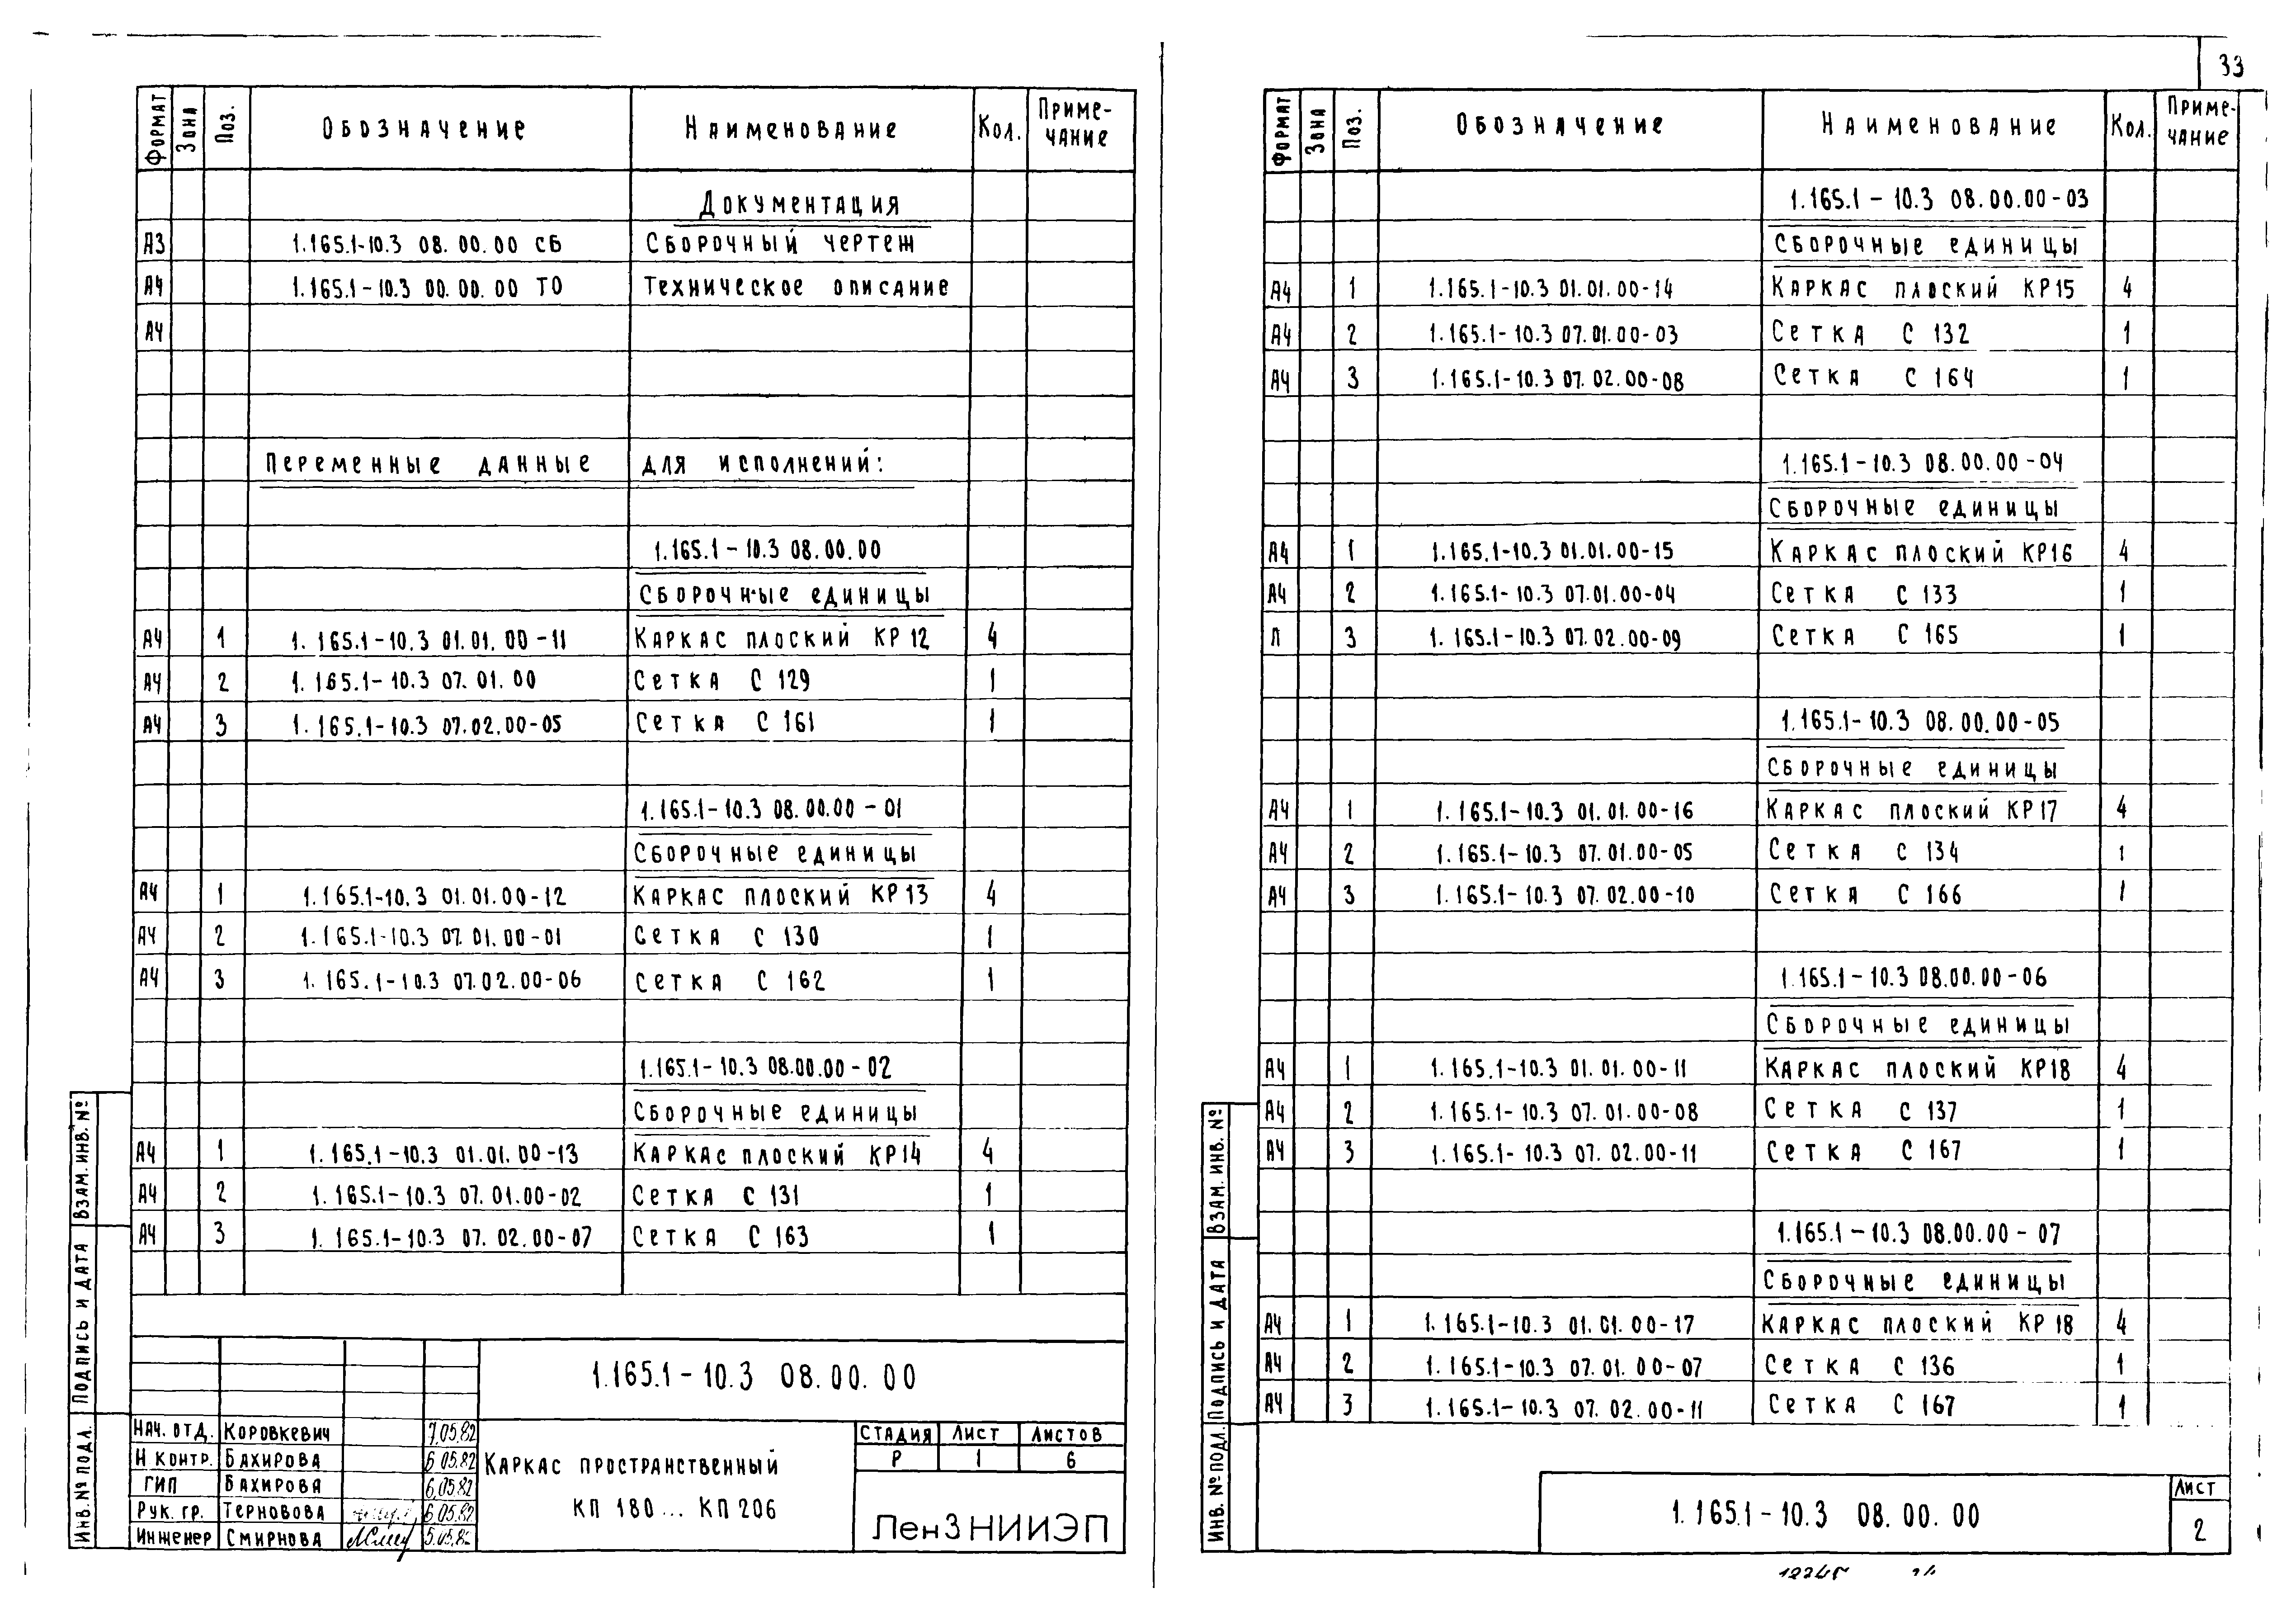 33
Формат Зона Поз. Обозначение Наименование Кол. Приме-
чание
Документация
А3 1.165.1-10.3 08.00.00 СБ Сборочный чертеж
А4 1.165.1-10.3 00.00.00 ТО Техническое описание
А4
Переменные данные для исполнений:
1.165.1-10.3 08.00.00
Сборочные единицы
А4 1 1.165.1-10.3 01.01.00-11 Каркас плоский КР12 4
А4 2 1.165.1-10.3 07.01.00 Сетка С 129 1
А4 3 1.165.1-10.3 07.02.00-05 Сетка С 161 1
1.165.1-10.3 08.00.00-01
Сборочные единицы
А4 1 1.165.1-10.3 01.01.00-12 Каркас плоский КР13 4
А4 2 1.165.1-10.3 07.01.00-01 Сетка С 130 1
А4 3 1.165.1-10.3 07.02.00-06 Сетка С 162 1
1.165.1-10.3 08.00.00-02
Сборочные единицы
А4 1 1.165.1-10.3 01.01.00-13 Каркас плоский КР14 4
А4 2 1.165.1-10.3 07.01.00-02 Сетка С 131 1
А4 3 1.165.1-10.3 07.02.00-07 Сетка С 163 1
Инв. № подл. Подпись и дата Взам. инв. №
1.165.1-10.3 08.00.00
Нач. отд. Коровкевич 7.05.82
Н контр. Бахирова 6 05.82
ГИП Бахирова 6.05.82
Рук. гр. Терновова 6.05.82
Инженер Смирнова 5.05.82
Каркас пространственный
КП 180... КП 206
Стадия Лист Листов
Р 1 6
ЛенЗНИИЭП
Формат Зона Поз. Обозначение Наименование Кол. Приме-
чание
1.165.1-10.3 08.00.00-03
Сборочные единицы
А4 1 1.165.1-10.3 01.01.00-14 Каркас плоский КР15 4
А4 2 1.165.1-10.3 07.01.00-03 Сетка С 132 1
А4 3 1.165.1-10.3 07.02.00-08 Сетка С 164 1
1.165.1-10.3 08.00.00-04
Сборочные единицы
А4 1 1.165.1-10.3 01.01.00-15 Каркас плоский КР16 4
А4 2 1.165.1-10.3 07.01.00-04 Сетка С 133 1
Л 3 1.165.1-10.3 07.02.00-09 Сетка С 165 1
1.165.1-10.3 08.00.00-05
Сборочные единицы
А4 1 1.165.1-10.3 01.01.00-16 Каркас плоский КР17 4
А4 2 1.165.1-10.3 07.01.00-05 Сетка С 134 1
А4 3 1.165.1-10.3 07.02.00-10 Сетка С 166 1
1.165.1-10.3 08.00.00-06
Сборочные единицы
А4 1 1.165.1-10.3 01.01.00-11 Каркас плоский КР18 4
А4 2 1.165.1-10.3 07.01.00-08 Сетка С 137 1
А4 3 1.165.1-10.3 07.02.00-11 Сетка С 167 1
1.165.1-10.3 08.00.00-07
Сборочные единицы
А4 1 1.165.1-10.3 01.01.00-17 Каркас плоский КР 18 4
А4 2 1.165.1-10.3 07.01.00-07 Сетка С 136 1
А4 3 1.165.1-10.3 07.02.00-11 Сетка С 167 1
Инв. № подл. Подпись и дата Взам. инв. №
1.165.1-10.3 08.00.00
Лист
2